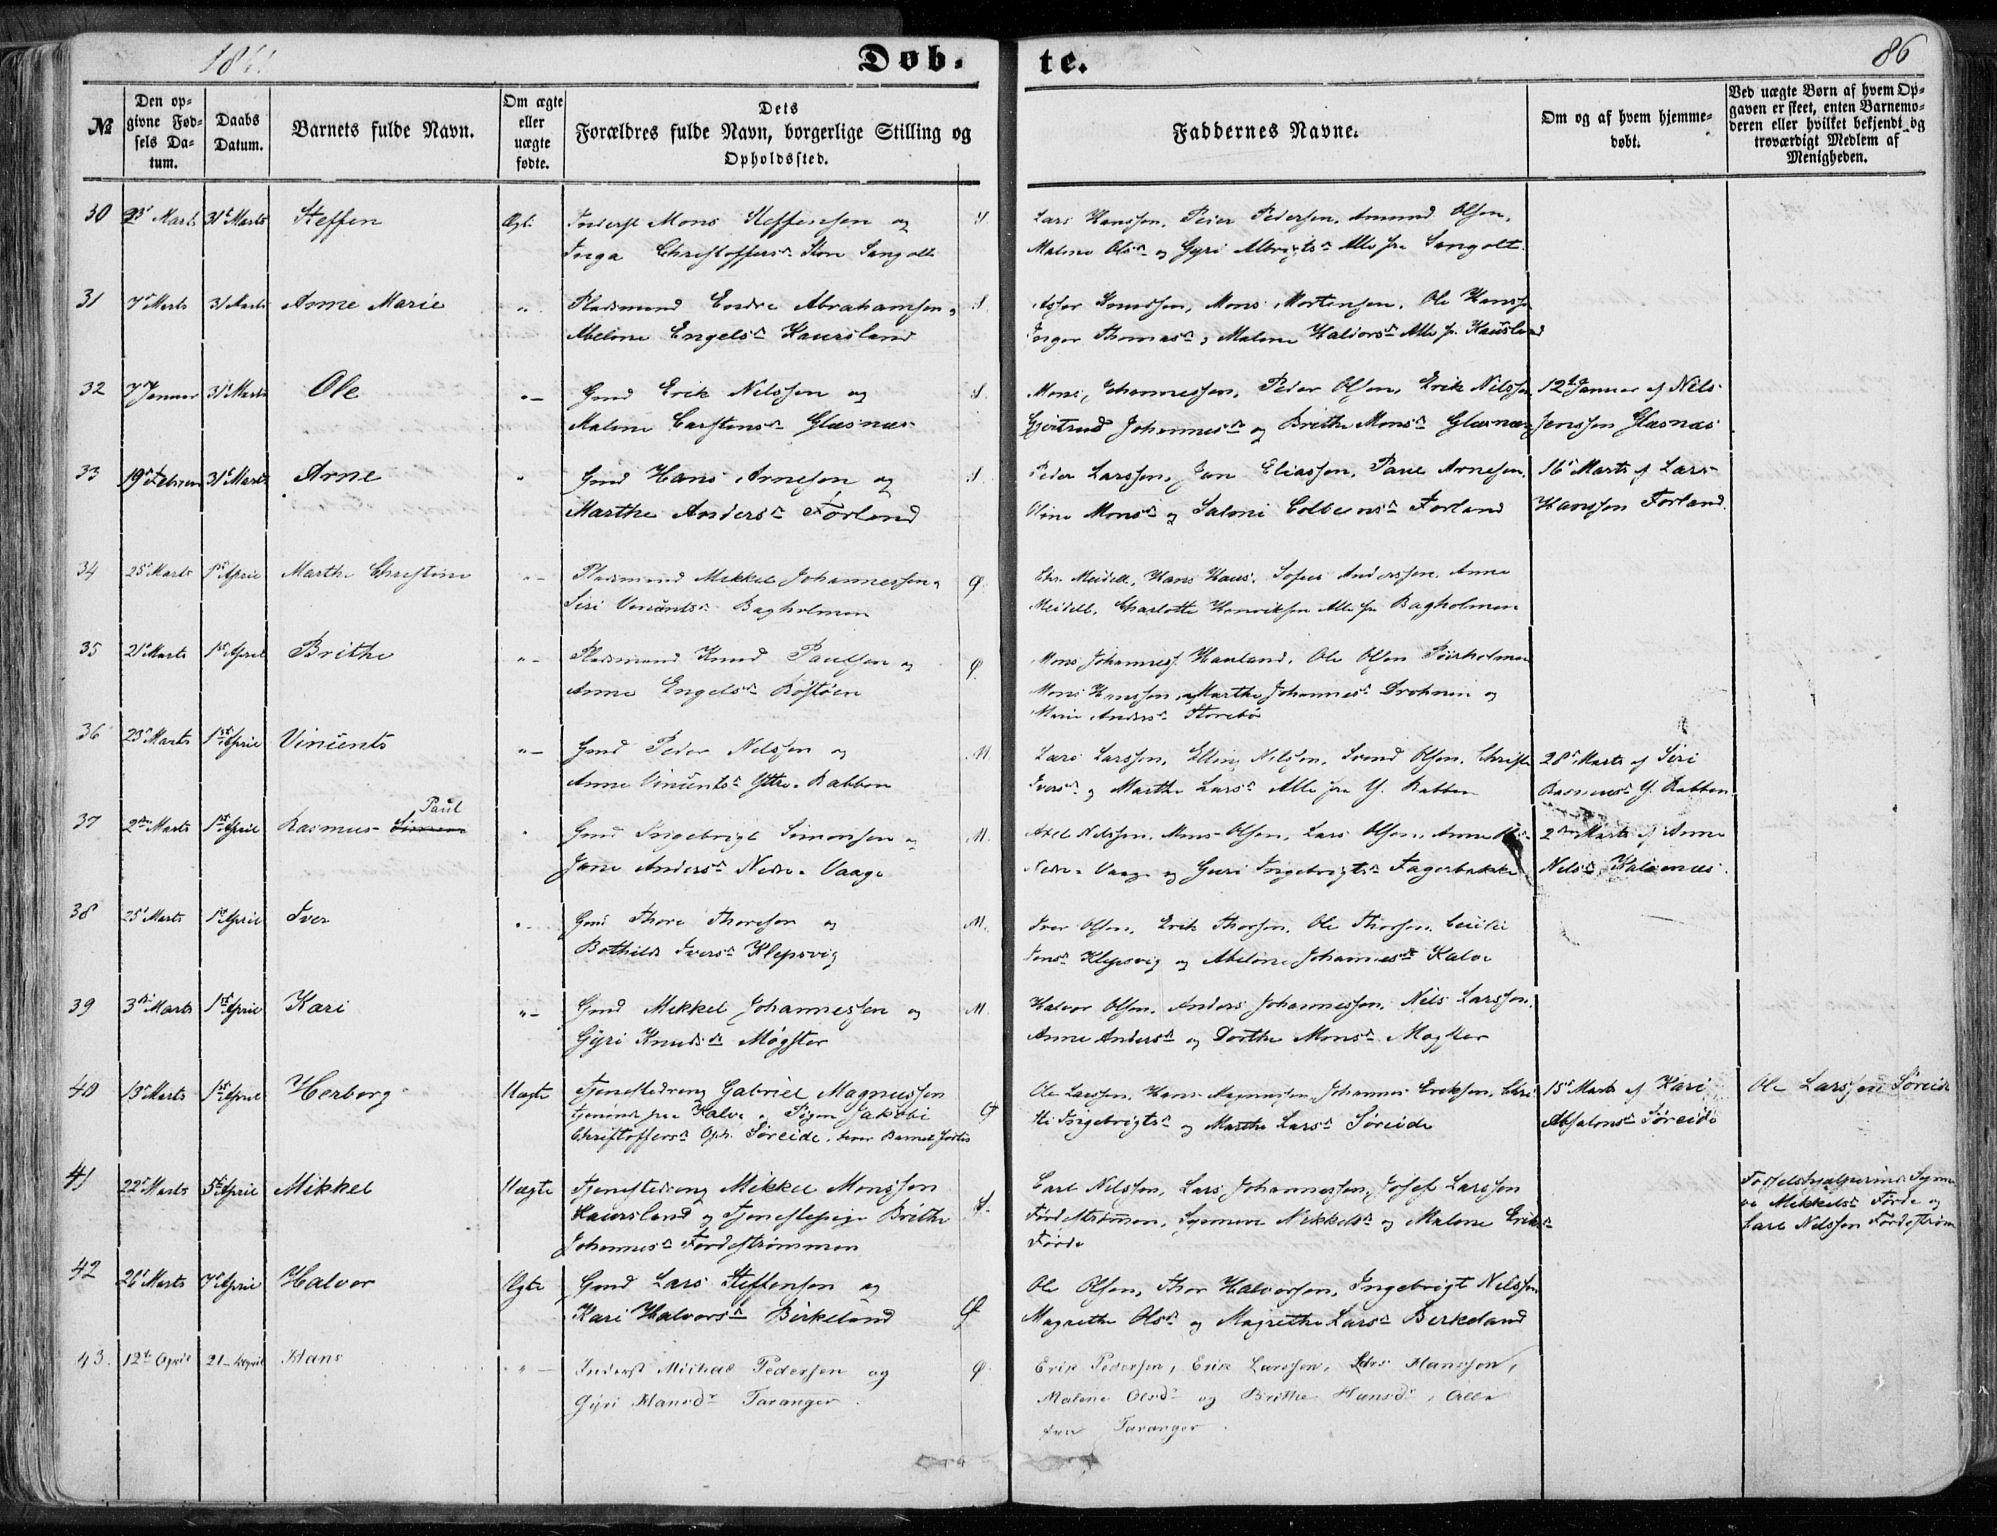 Døb-
te.
86
№
Den op-
givne Fød-
sels Da-
tum.
Daabs
Datum.
Barnets fulde Navn.
Om ægte
eller
uægte
fødte.
Dets
Forældres fulde Navn, borgerlige Stilling og
Opholdssted.
Faddernes Navne.
Om og af hvem hjemme-
døbt.
Ved uægte Børn af hvem Op-
gaven er skeet, enten Barnemo-
deren eller hvilket bekjendt og
troværdigt Medlem af
Menigheden.
30 23 Marts 31t Marts Steffen Ægte Inderst Mons Steffensen og S.
Inga Christoffersdr Store Sangolt
Lars Hanssen, Peder Pedersen, Amund Olsen,
Malene Olsdr og Gyri Albrigtsdr Alle fra Sangolt
31 7 Marts 31 Marts Anne Marie " Pladsmand Endre Abrahamsen S.
Abelone Engelsdr Kauersland
Mons Mortensen, Ole Hanssen
Inger Thomasdr, Malene Halvorsdr Alle fr. Kausland
32 7 Januar 31 Marts Ole " Gmd Erik Nilssen og S.
Malene Carstensdr Glæsnæs
Mons Johannessen, Peder Olsen, Erik Nilssen
Gjertrud Johannesdr og Brithe Monsdr Glæsnæs
12t Januar af Nils
Jenssen Glæsnæs
33 19 Februar 31t Marts Arne " Gmd Hans Arnesen og S.
Marthe Andersdr Førland
Peder Larssen, Jan Eliassen, Paul Arnesen,
Oline Monsdr og Salomi Colbensdr Førland
16 Marts af Lars
Hanssen Førland
34 25 Marts 1st April Marthe Christine " Pladsmand Mikkel Johannessen Ø.
Siri Vincentsdr Bagholmen
Chr. Meidell, Hans Haus, Sofus Anderssen, Anne
Meidell, Charlotte Henriksen Alle fra Bagholmen
35 21 Marts 1st April Brithe " Pladsmand Knud Paulsen og Ø.
Anne Engelsdr
Mons Johanness. Hauland, Ole Olsen
Mons Hanssen, Marthe Johannesdr og
Marie Andersdr Storebø
36 23 Marts 1st April Vincents " Gmd Peder Nelssen og M.
Anne Vincentsdr Yttre Rabben
Lars Larssen, Elling Nilssen, Svend Olsen, Christi
Iversdr og Marthe Larsdr Alle fra Y. Rabben
28 Marts af Siri
Rasmusdr Y. Rabben
Paul
37 2den Marts 1st April Rasmus Simon " Gmd Ingebrigt Simonsen og M.
Jane Andersdr Nedre Vaage
Axel Nilssen, Mons Olsen, Lars Olsen, Anne
Nedre Vaage og Guri Ingebrigtsdr Fagerbakke
2den Marts af Anne
Nelsdr Kalvenæs
38 25 Marts 1st April Iver " Gmd Thore Thoresen og M.
Bothilde Iversdr Klepsvig
Iver Olsen, Erik Thorsen, Ole Thorsen, Cecilie
Jensdr Klepsvig og Abelone Johannesdr Kalve
39 3die Marts 1st April Kari " Gmd Mikkel Johannessen og M.
Gyri Knudsdr Møgster
Halvor Olsen, Anders Johannessen, Nils Larssen,
Anne Andersdr og Dorthe Monsdr Møgster
40 13 Marts 1st April Herborg Uægte Tjenestedreng Gabriel Magnussen
tjenende paa Kalve Pigen Jakobi Ø
Christoffersdr Oph. Søreide, hvor Barnet fødtes
Ole Larssen, Hans Magnussen, Johannes Eriksen, Chri-
sti Ingebrigtsdr og Marthe Larsdr Søreide
15 Marts af Kari
Absalonsdr Søreide
Ole Larssen Søreide
41 22 Marts 5te April Mikkel Uægte Tjenestedreng Mikkel Monssen
Kauersland og Tjenestepige Brithe S.
Johannesdr Førdestrømmen
Carl Nilssen, Lars Johannessen, Josef Larssen
Førdestrømmen, Synneve Mikkelsdr og Malene Eriksdr
Førde
Fødselshjælperinde Synne-
ve Mikkelsdr Førde og
Carl Nelssen Førdestrøm
42 26 Marts 7 April Halvor Ægte Gmd Lars Steffensen og Ø
Kari Halvorsdr Birkeland
Ole Olsen, Thor Halvorsen, Ingebrigt Nilssen
Magrethe Olsdr og Magrethe Larsdr Birkeland
43. 12te April 21 April Hans " Inderst Michael Pedersen og Ø
Gyri Hansdr Taranger.
Erik Pedersen, Erik Larssen, Lars Hanssen,
Malene Olsdr og Brithe Hansdr, Alle
fra Taranger.